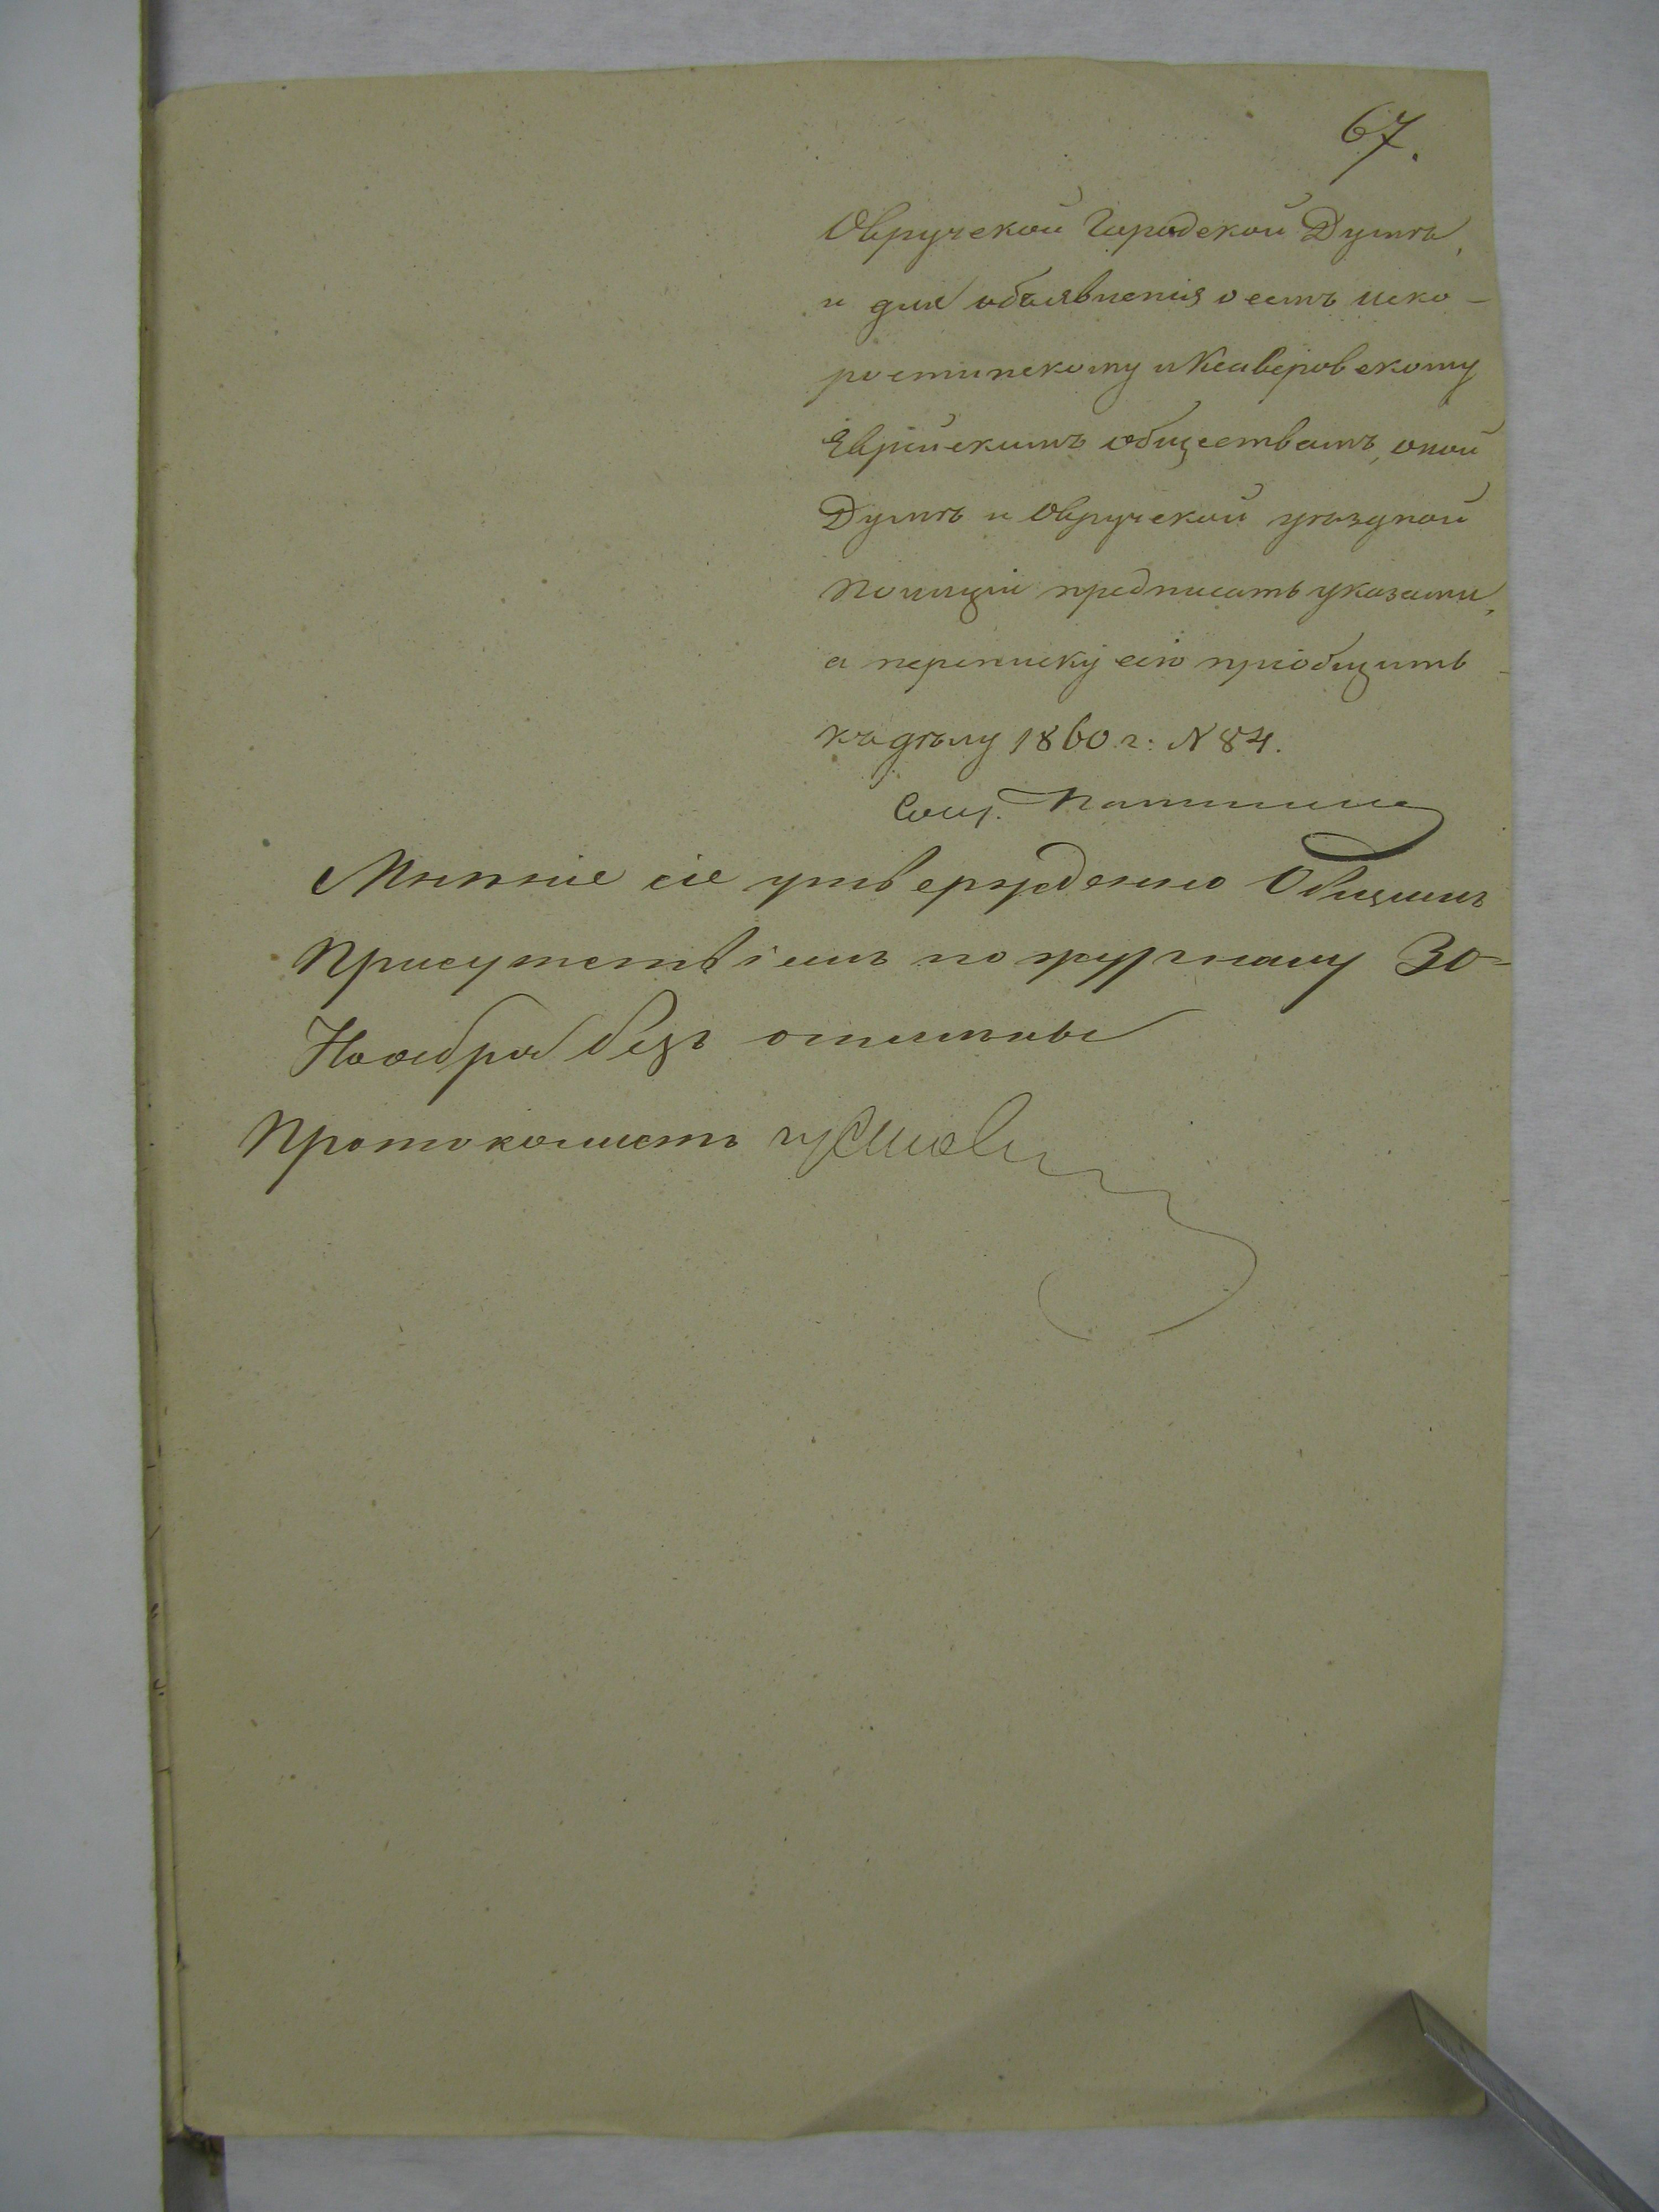 67.
Овручской Городской Думѣ,
и для объявленія о семъ Иско-
ростинскому и Ксаверовскому
Еврейскимъ обществамъ, оной
Думѣ и Овручской уѣздной
Полиціи предписать указами,
а переписку сію пріобщить
къ дѣлу 1860 г: N 84.
Сов.
Мнѣніе сіе утверждено Общимъ
Присутствіемъ по журналу 30
Ноября безъ отмѣны
Протоколистъ